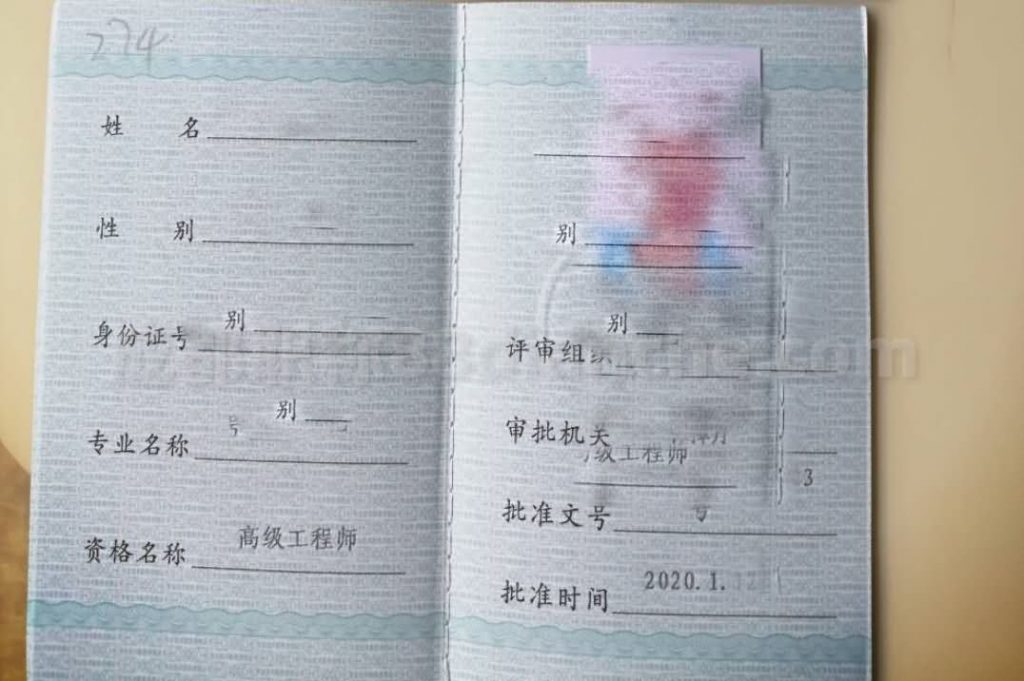 274
姓 名
性 别
别
身份证号
别
号
专业名称
资格名称 高级工程师
别
别
评审组织
审批机关
级工程师
3
批准文号
号
批准时间 2020.1.